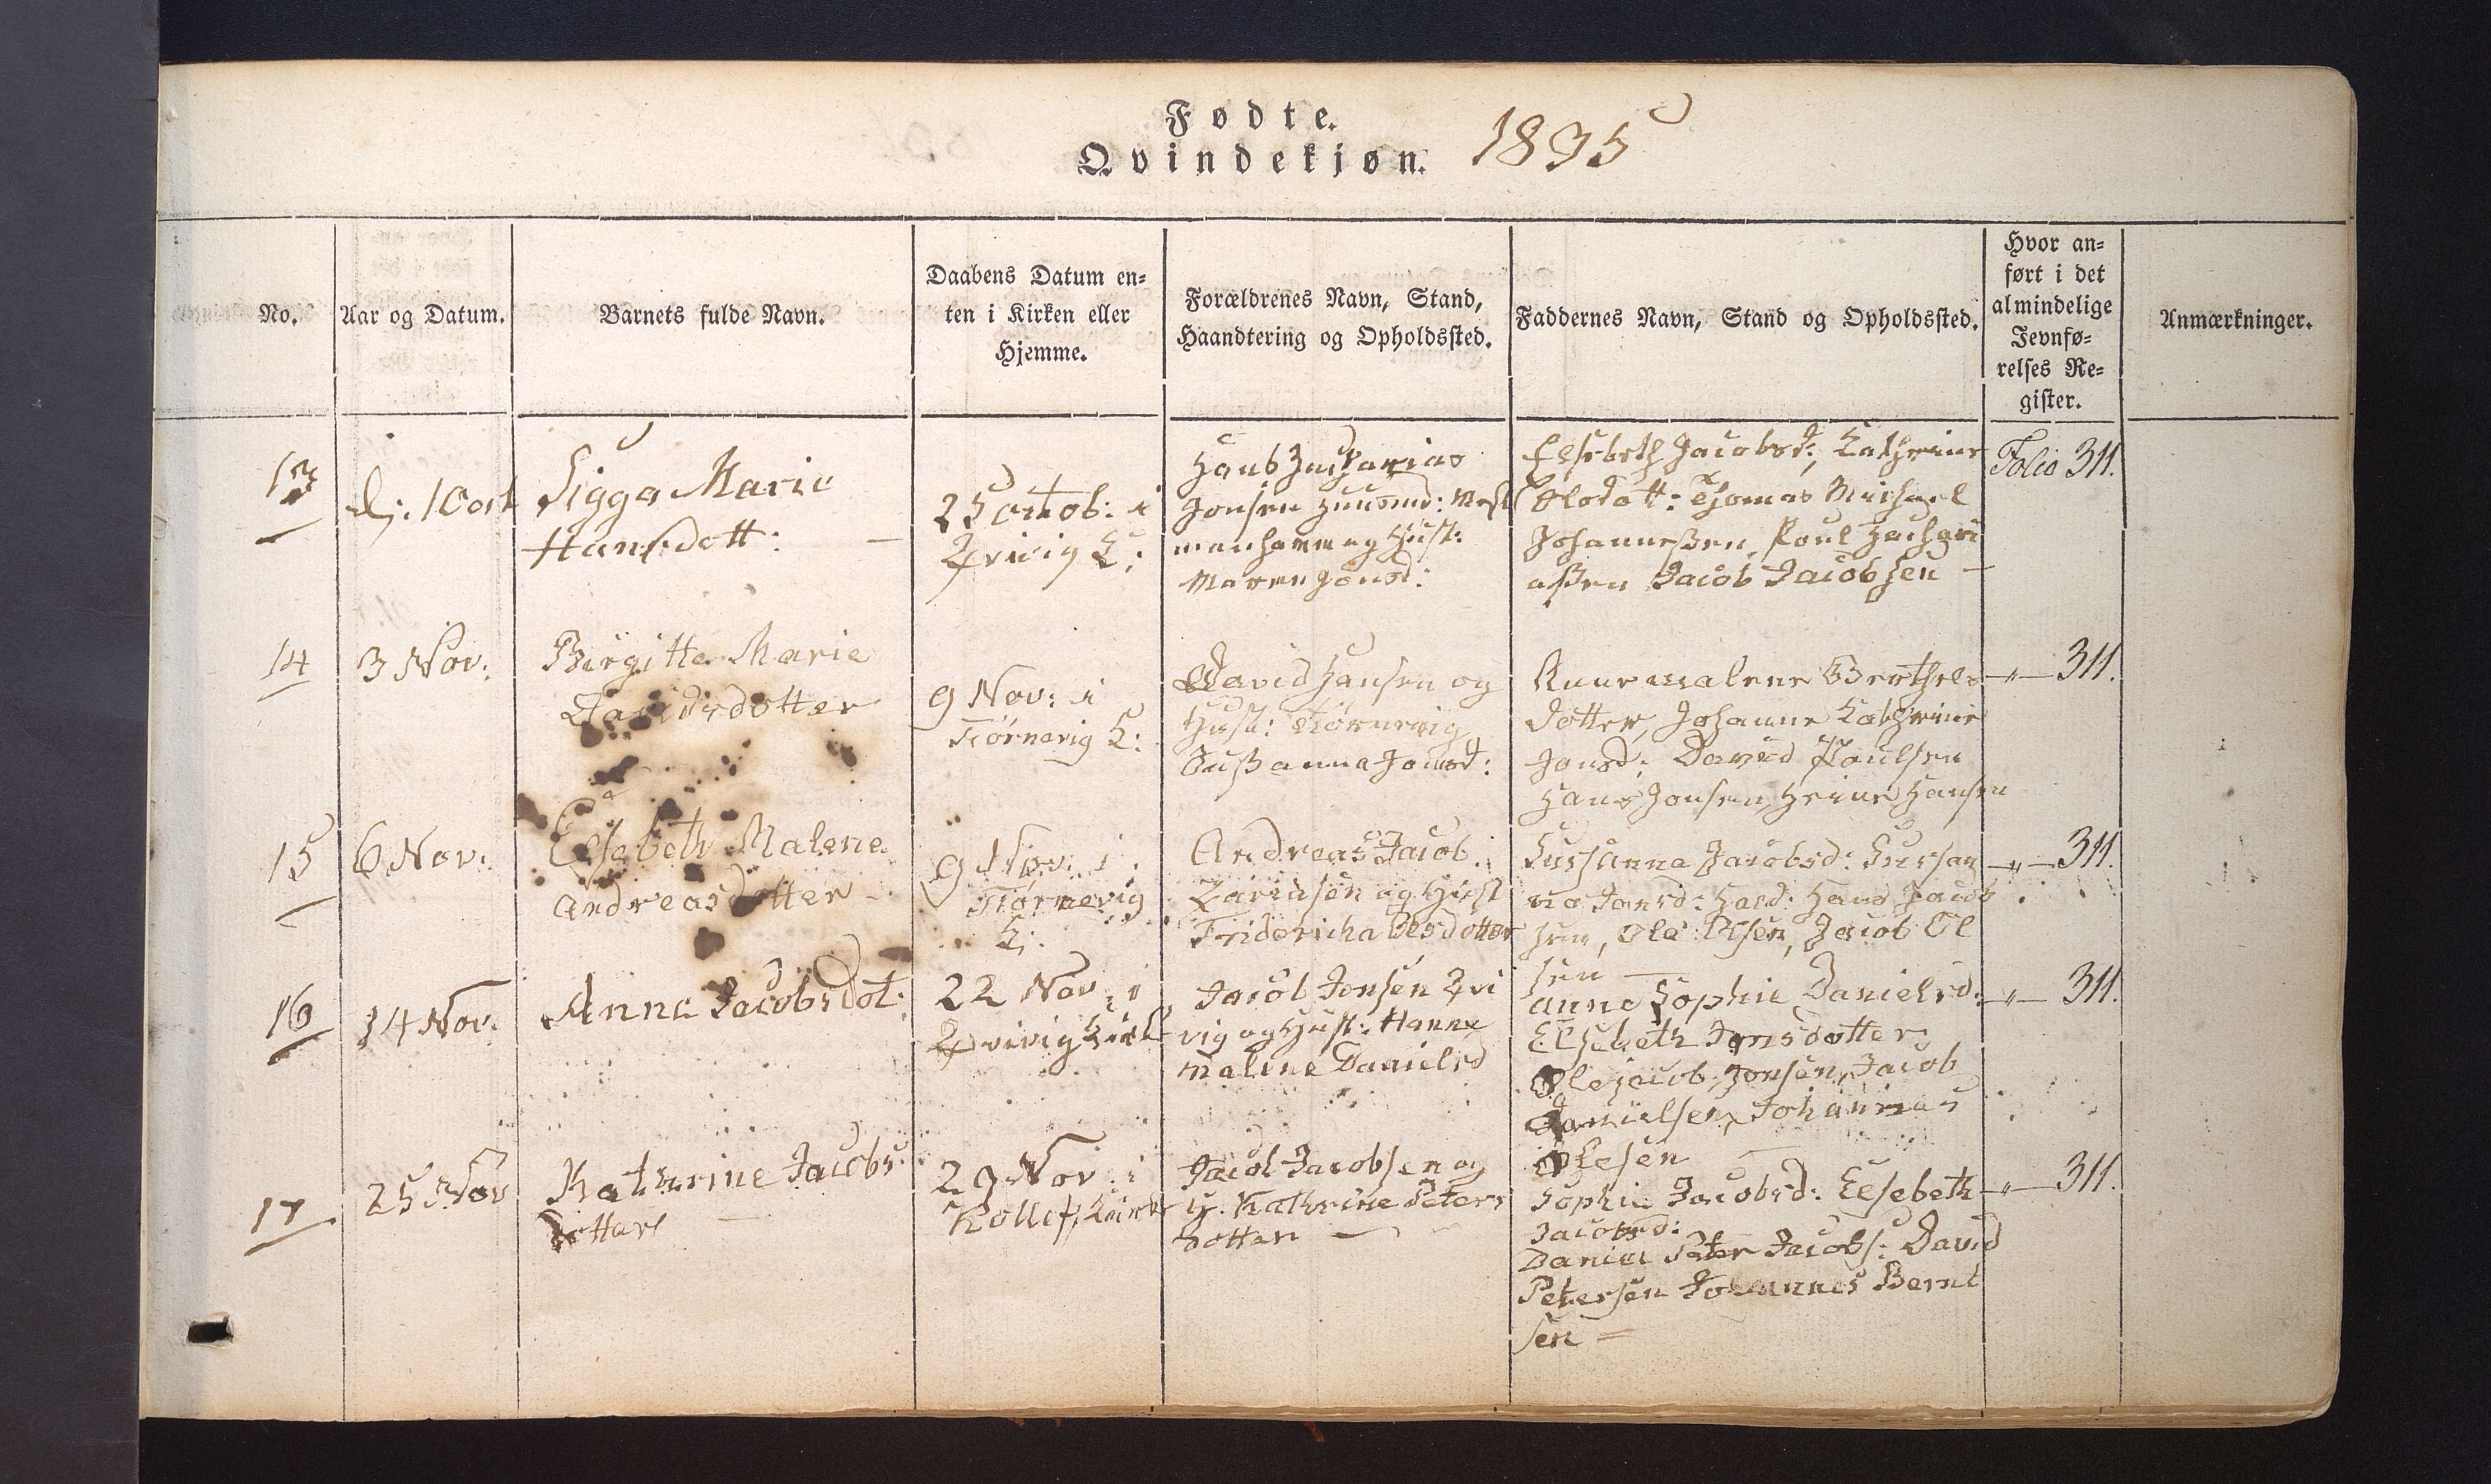 Fødte.
Qvindekjøn. 1835
No.
Aar og Datum.
Barnets fulde Navn.
Daabens Datum en=
ten i Kirken eller
Hjemme.
Forældrenes Navn, Stand,
Haandtering og Opholdssted.
Faddernes Navn, Stand og Opholdssted.
Hvor an=
ført i det
almindelige
Jevnfø=
relses Re=
gister.
Anmærkninger.
13
d: 1 Oct
Sigga Marie
Hansdott:
25 octob: i
Qvivig K:
Hans Zacharias
Jonsen Huusmd: Vest
manhavn og Hust:
Maren Jonsd:
Elsebeth Jacobsd: Kathrine
Olsdott: Thomas Michael
Johannesen, Poul Zachari
asen Jacob Jacobsen
Folio 311.
14
3 Nov:
Birgitte Marie
Davidsdotter
9 Nov: i
Tiørnevig K:
David Hansen og
Hust: Tiørnevig
Sussanna Jonsd:
Anne Malene Berthels
dotter, Johanne Kathrine
Jonsd: David Poulsen
Hans Jonsen, Heine Hansen
-"- 311.
15
6 Nov:
Elsebeth Malene
Andreasdotter
9 Nov: i
Tiørnevig
K:
Andreas Jacob
Zariasen og Hust
Fridericha Olesdotter
Sussanna Jacobsd: Sussan
na Jansd: Hald: Hans Jacob
sen, Ole Olsen, Jacob Ol
sen
-"- 311.
16
14 Nov:
Anna Jacobsdot:
22 Nov: i
Qvivig Kirk
Jacob Jonsen Qvi
vig og Hust: Hanne
Maline Danielsd
Anne Sophie Danielsd:
Elsebeth Jonsdotter
Ole Jacob Jonsen, Jacob
Danielsen, Johannas
Olesen
-"- 311.
17
25 Nov
Kathrine Jacobs
dotter
29 Nov: i
Kollef: Kirke
Jacob Jacobsen og
H. Kathrine Peters
dotter
Sophie Jacobsd: Elsebeth
Jacobsd:
Daniel Peter Jacobs: David
Petersen Johannes Bernt
sen
-"- 311.